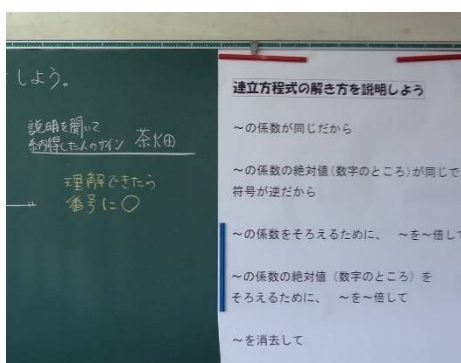 しよう。
説明を聞いて
納得した人のサイン 茶畑
理解できたら
番号に○
連立方程式の解き方を説明しよう
～の係数が同じだから
～の係数の絶対値(数字のところ)が同じで
符号が逆だから
～の係数をそろえるために、 ～を～倍して
～の係数の絶対値 (数字のところ) を
そろえるために、 ～を～倍して
～を消去して